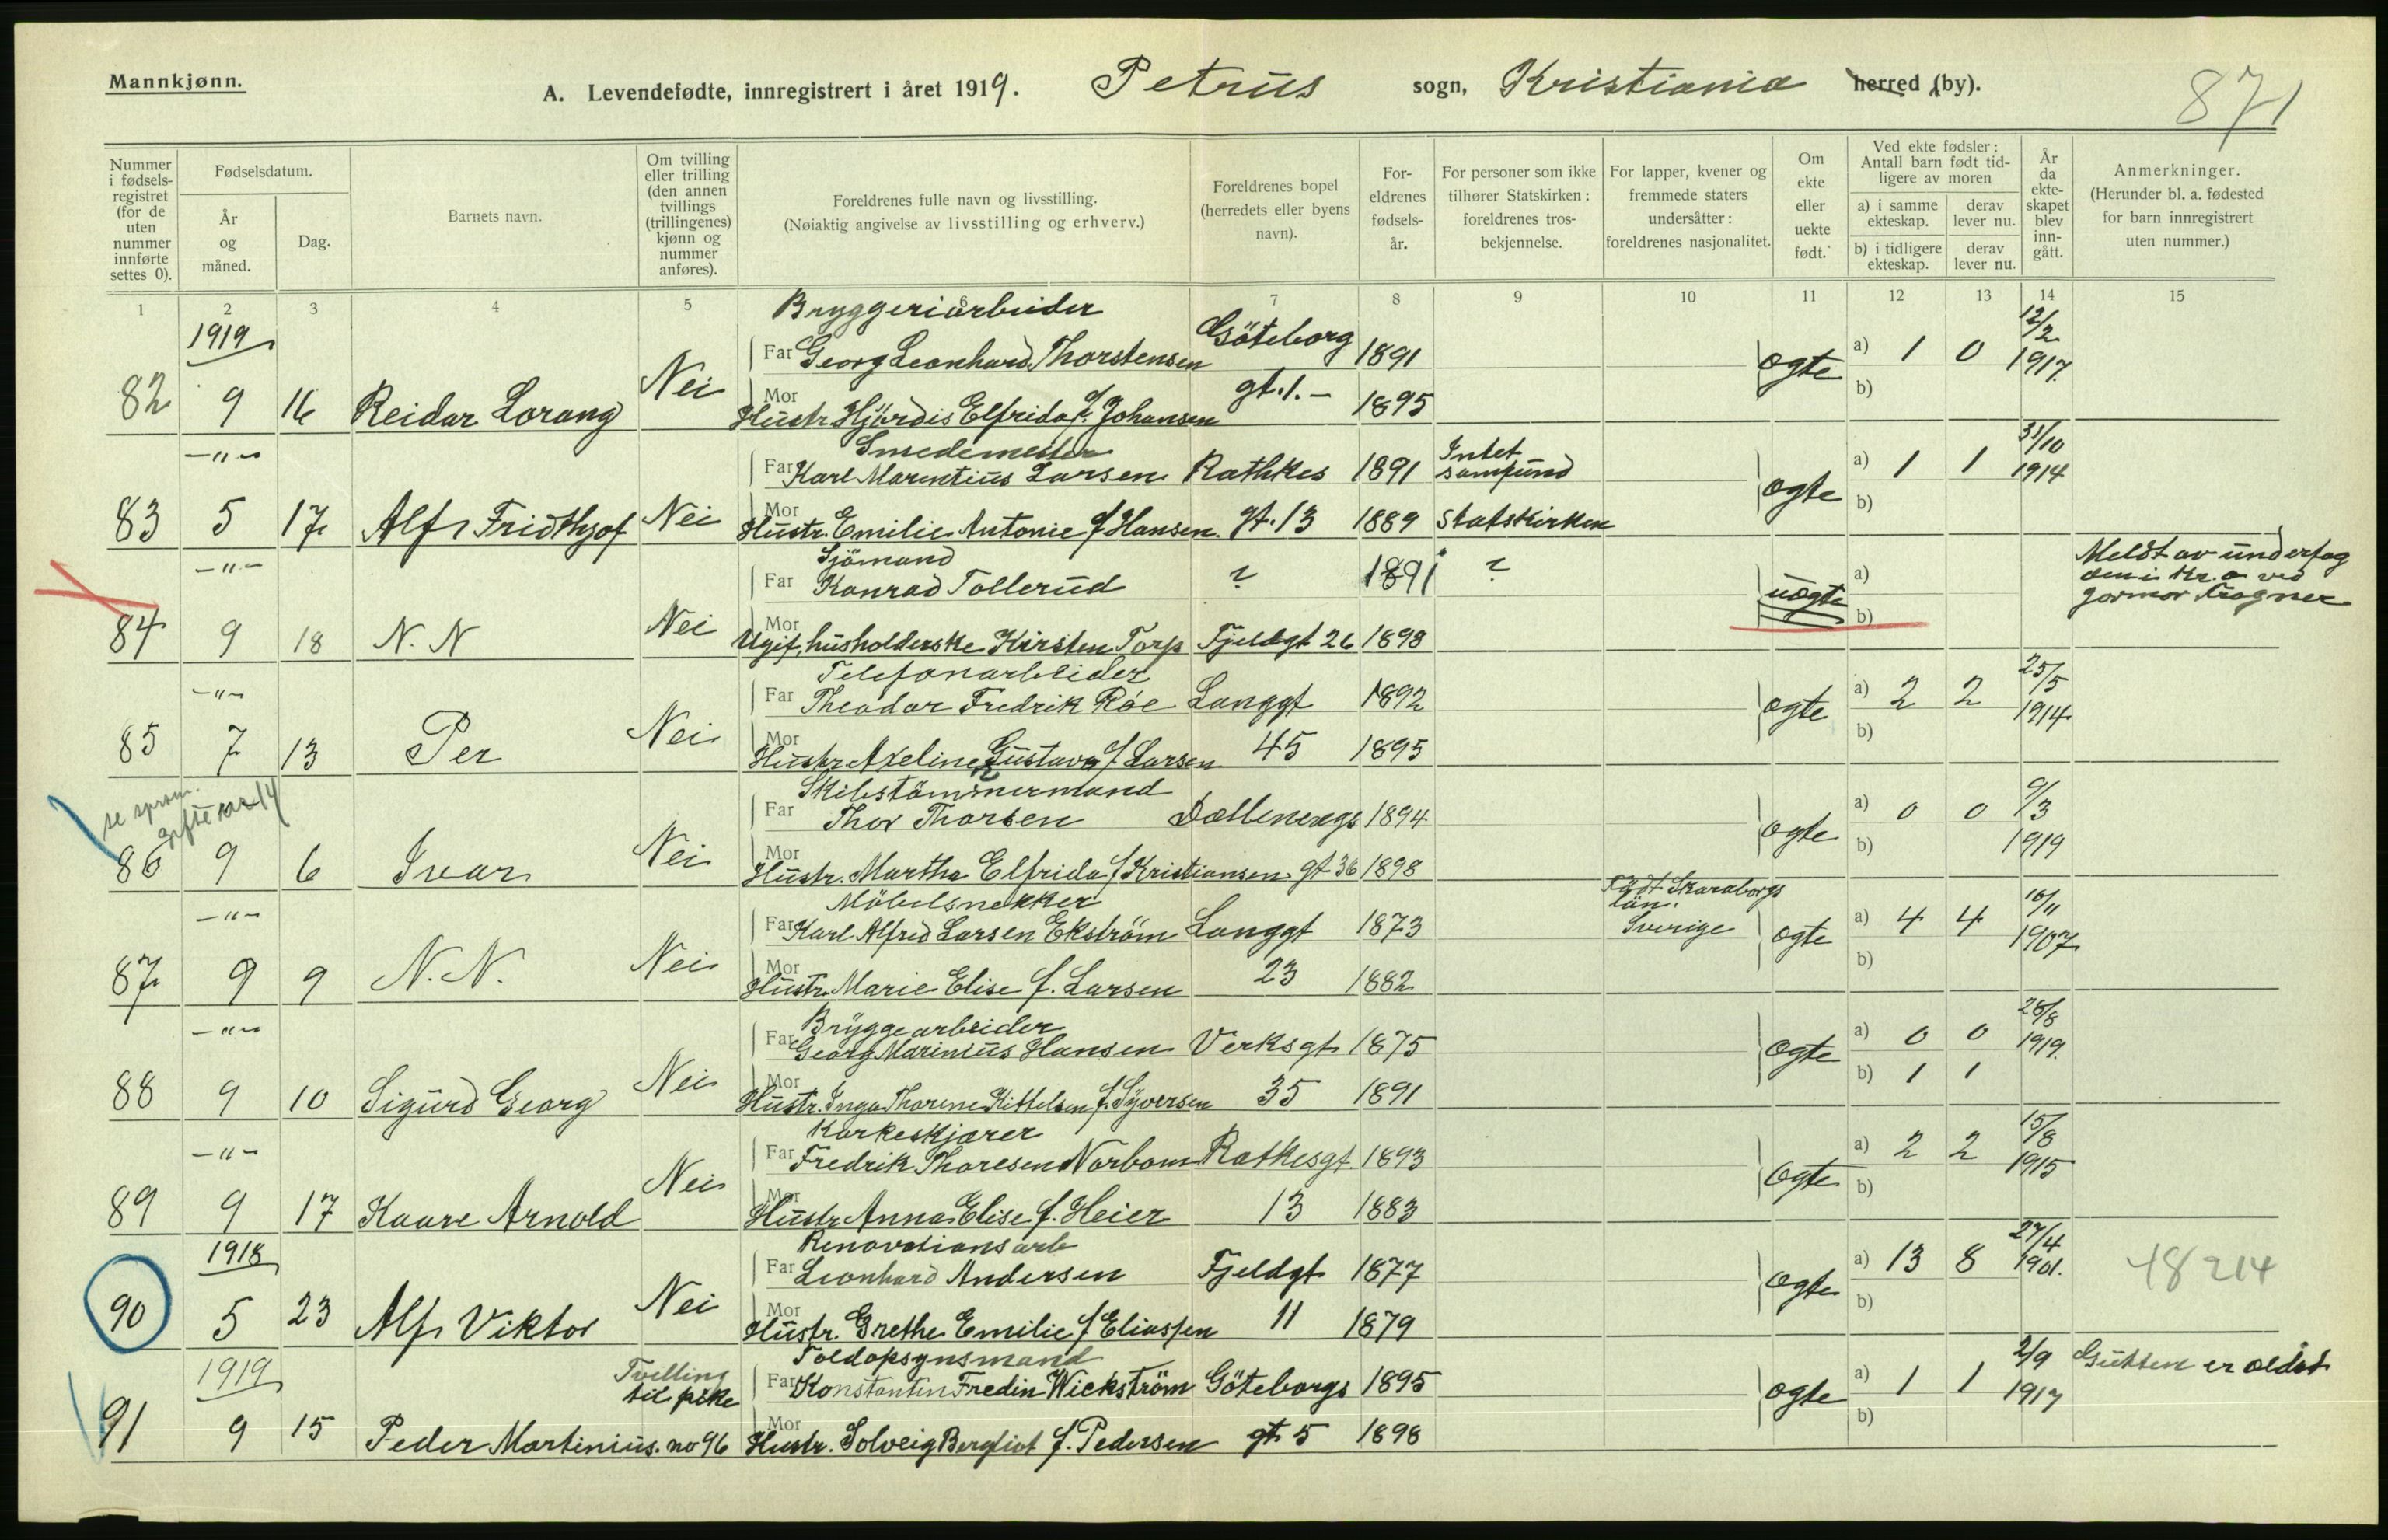 Mannkjønn.
A. Levendefødte, innregistrert i året 1919. Petrus sogn, Kristiania herred (by).
871
Nummer i fødsels-registret (for de uten nummer innførte settes 0).
Fødselsdatum.
År og måned.
Dag.
Barnets navn.
Om tvilling eller trilling (den annen tvillings (trillingenes) kjønn og nummer anføres).
Foreldrenes fulle navn og livsstilling.
(Nøiaktig angivelse av livsstilling og erhverv.)
Foreldrenes bopel (herredets eller byens navn).
For-eldrenes fødsels-år.
For personer som ikke tilhører Statskirken: foreldrenes tros-bekjennelse.
For lapper, kvener og fremmede staters undersåtter: foreldrenes nasjonalitet.
Om ekte eller uekte født.
Ved ekte fødsler: Antall barn født tid-ligere av moren
a) i samme ekteskap.
derav lever nu.
b) i tidligere ekteskap.
derav lever nu.
År da ekte-skapet blev inn-gått.
Anmerkninger.
(Herunder bl. a. fødested for barn innregistrert uten nummer.)
1 2 3 4 5 6 7 8 9 10 11 12 13 14 15
1919 Bryggeriarbeider 12/2
Far Georg Leonhard Thorstensen Göteborg 1891 a) 1 0 1917
82 9 16 Reidar Lorang Nei Mor Hustr. Hjørdis Elfrida f. Johansen gt. 1. - 1895 ogte b)
-"- Smedemester Intet 31/10
Far Karl Marentius Larsen Rathkes 1891 samfund a) 1 1 1914
83 5 17 Alf Fridthjof Nei Mor Hustr. Emilie Antonie f Hansen gt. 13 1889 Statskirken ogte b)
-"- Sjömand Meldt av
Far Konrad Tollerud ? 1891 ? a)
84 9 18 N. N Nei Mor Ugift husholderske Kirsten Torp Fjeldgt 26 1898 uogte b)
-"- Telefonarbeider 25/5
Far Theodor Fredrik Röe Langgt 1892 a) 2 2 1914
85 7 13 Per Nei Mor Hustr Axeline Gustava f Larsen 45 1895 ogte b)
se gifte
Skibstömmermand 9/3
Far Thor Thorsen Dællenengs 1894 a) 0 0 1919
86 9 6 Ivar Nei Mor Hustr. Martha Elfrida f Kristiansen gt 36 1898 ogte b)
-"- Möbelsnekker Född Skaraborgs län. 10/11
Far Karl Alfred Larsen Ekström Langgt 1873 Sverige a) 4 4 1907
87 9 9 N. N. Nei Mor Hustr. Marie Elise f. Larsen 23 1882 ogte b)
-"- Bryggearbeider 28/8
Far Georg Marinius Hansen Verksgt 1875 a) 0 0 1919
88 9 10 Sigurd Georg Nei Mor Hustr. Inga Thorene Kittelsen f. Syversen 35 1891 ogte b) 1 1
-"- Korkeskjærer 15/8
Far Fredrik Thoresen Norbom Ratkesgt 1893 a) 2 2 1915
89 9 17 Kaare Arnold Nei Mor Hustr Anna Elise f. Heier 13 1883 ogte b)
1918 Renovationsarb 27/4
Far Leonhard Andersen Fjeldgt 1877 a) 13 8 1901. 48214
90 5 23 Alf Viktor Nei Mor Hustr. Grethe Emilie f Eliassen 11 1879 ogte b)
1919 Tvilling Toldopsynsmand 2/9 Gutten er ældst
til pike Far Konstantin Fredin Wickström Göteborgs 1895 a) 1 1 1917
91 9 15 Peder Martinius. no 96 Mor Hustr. Solveig Bergliot f. Pedersen gt. 5 1898 ogte b)